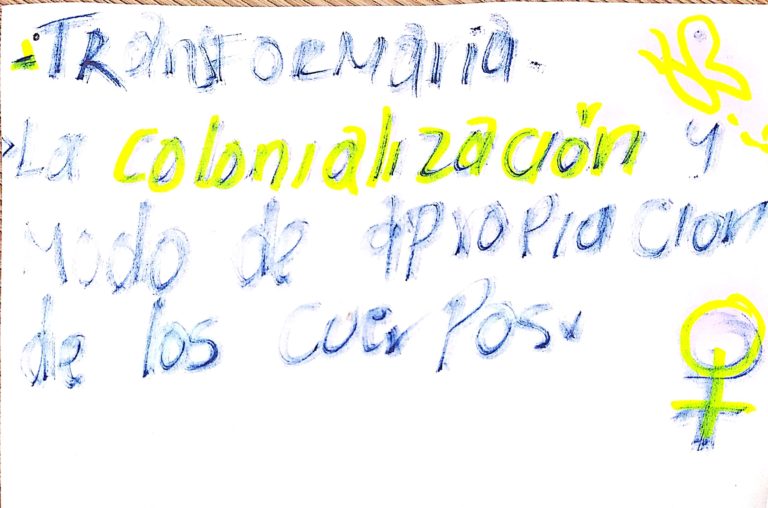 -TRansFORMaria.
La colonialización y
modo de apropiacion
de los cuerpos.